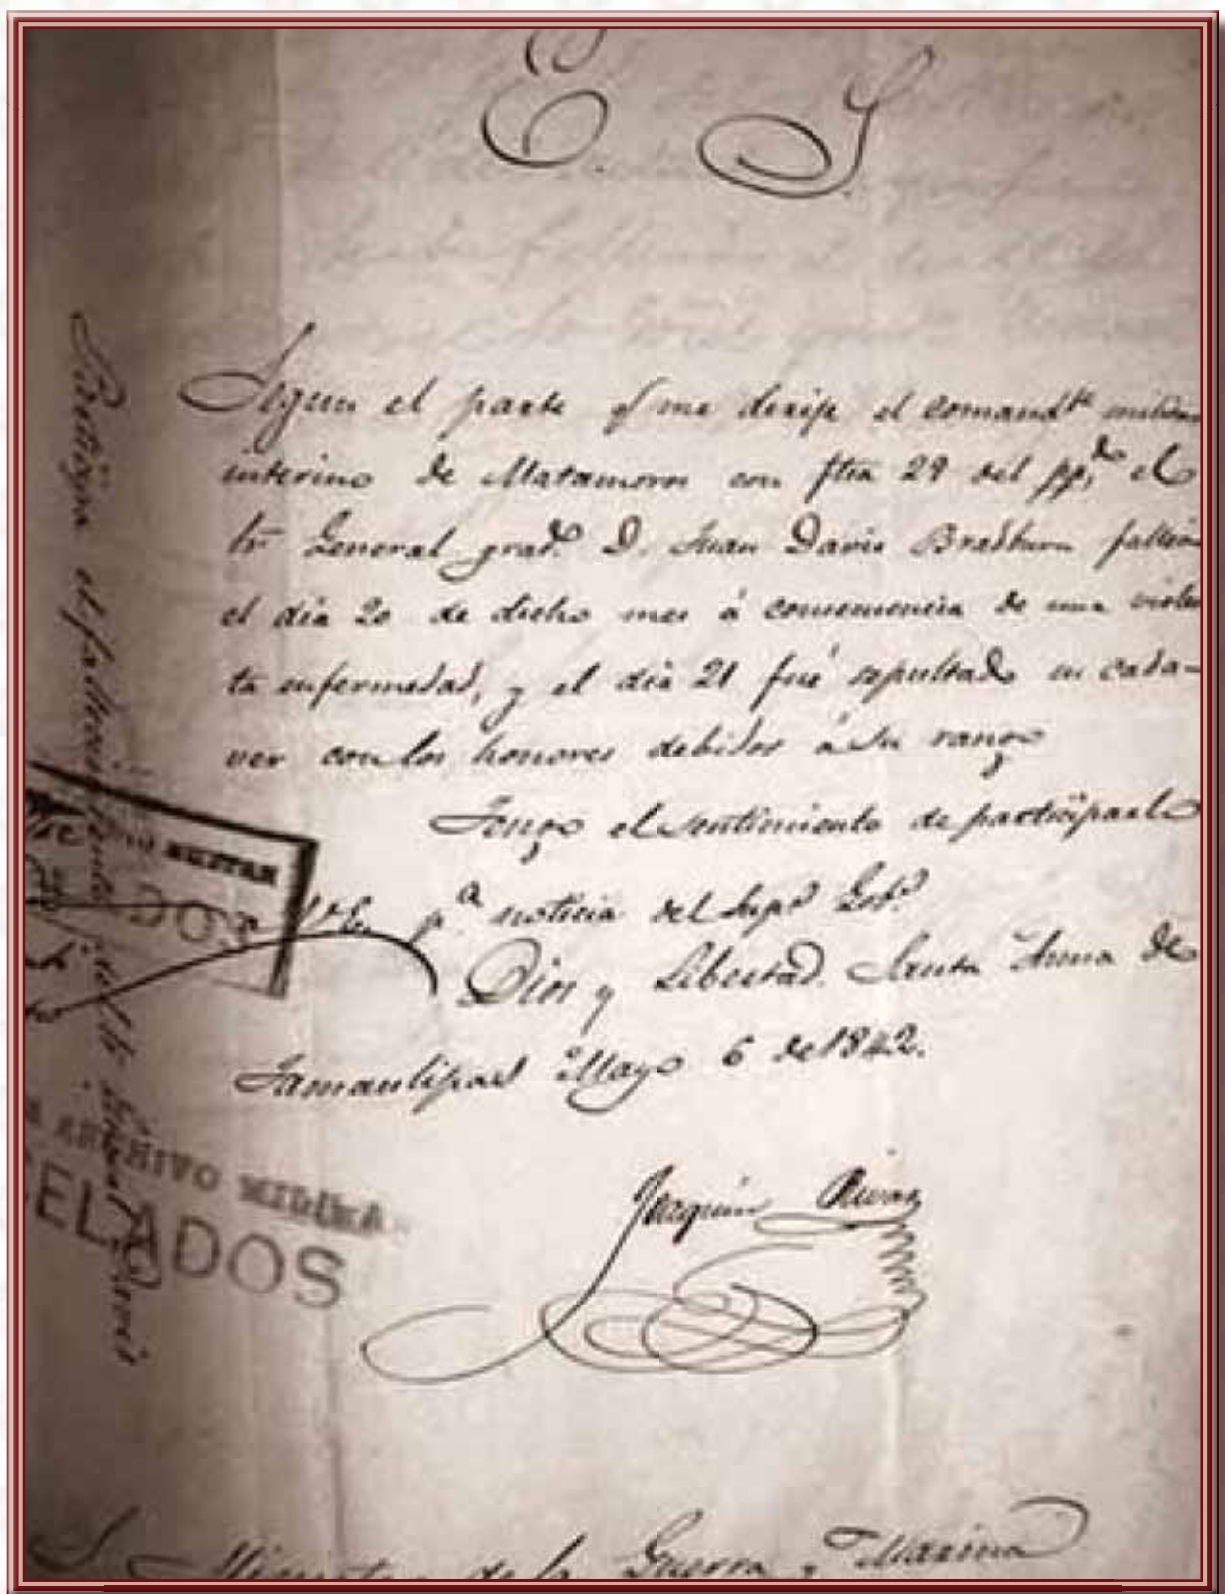 E. S.
Segun el parte q me dirije el comandte militar
interino de Matamoros con fha 29 del pp.do el
Sr General grad.o D. Juan Davis Bradburn fallecio
el dia 20 de dicho mes á consecuencia de una violen
ta enfermedad, y el dia 21 fué sepultado su cada-
ver con los honores debidos á su rango
Tengo el sentimiento de participarlo
á V.E. p.a noticia del Supr Gob.o
Dios y Libertad. Santa Anna de
Tamaulipas Mayo 6 de 1842.
Joaquin Rivas
S. Ministro de la Guerra y Marina
Participa el fallecimiento del Sr General Davis
MILITAR
ARCHIVO MILITAR
CELADOS